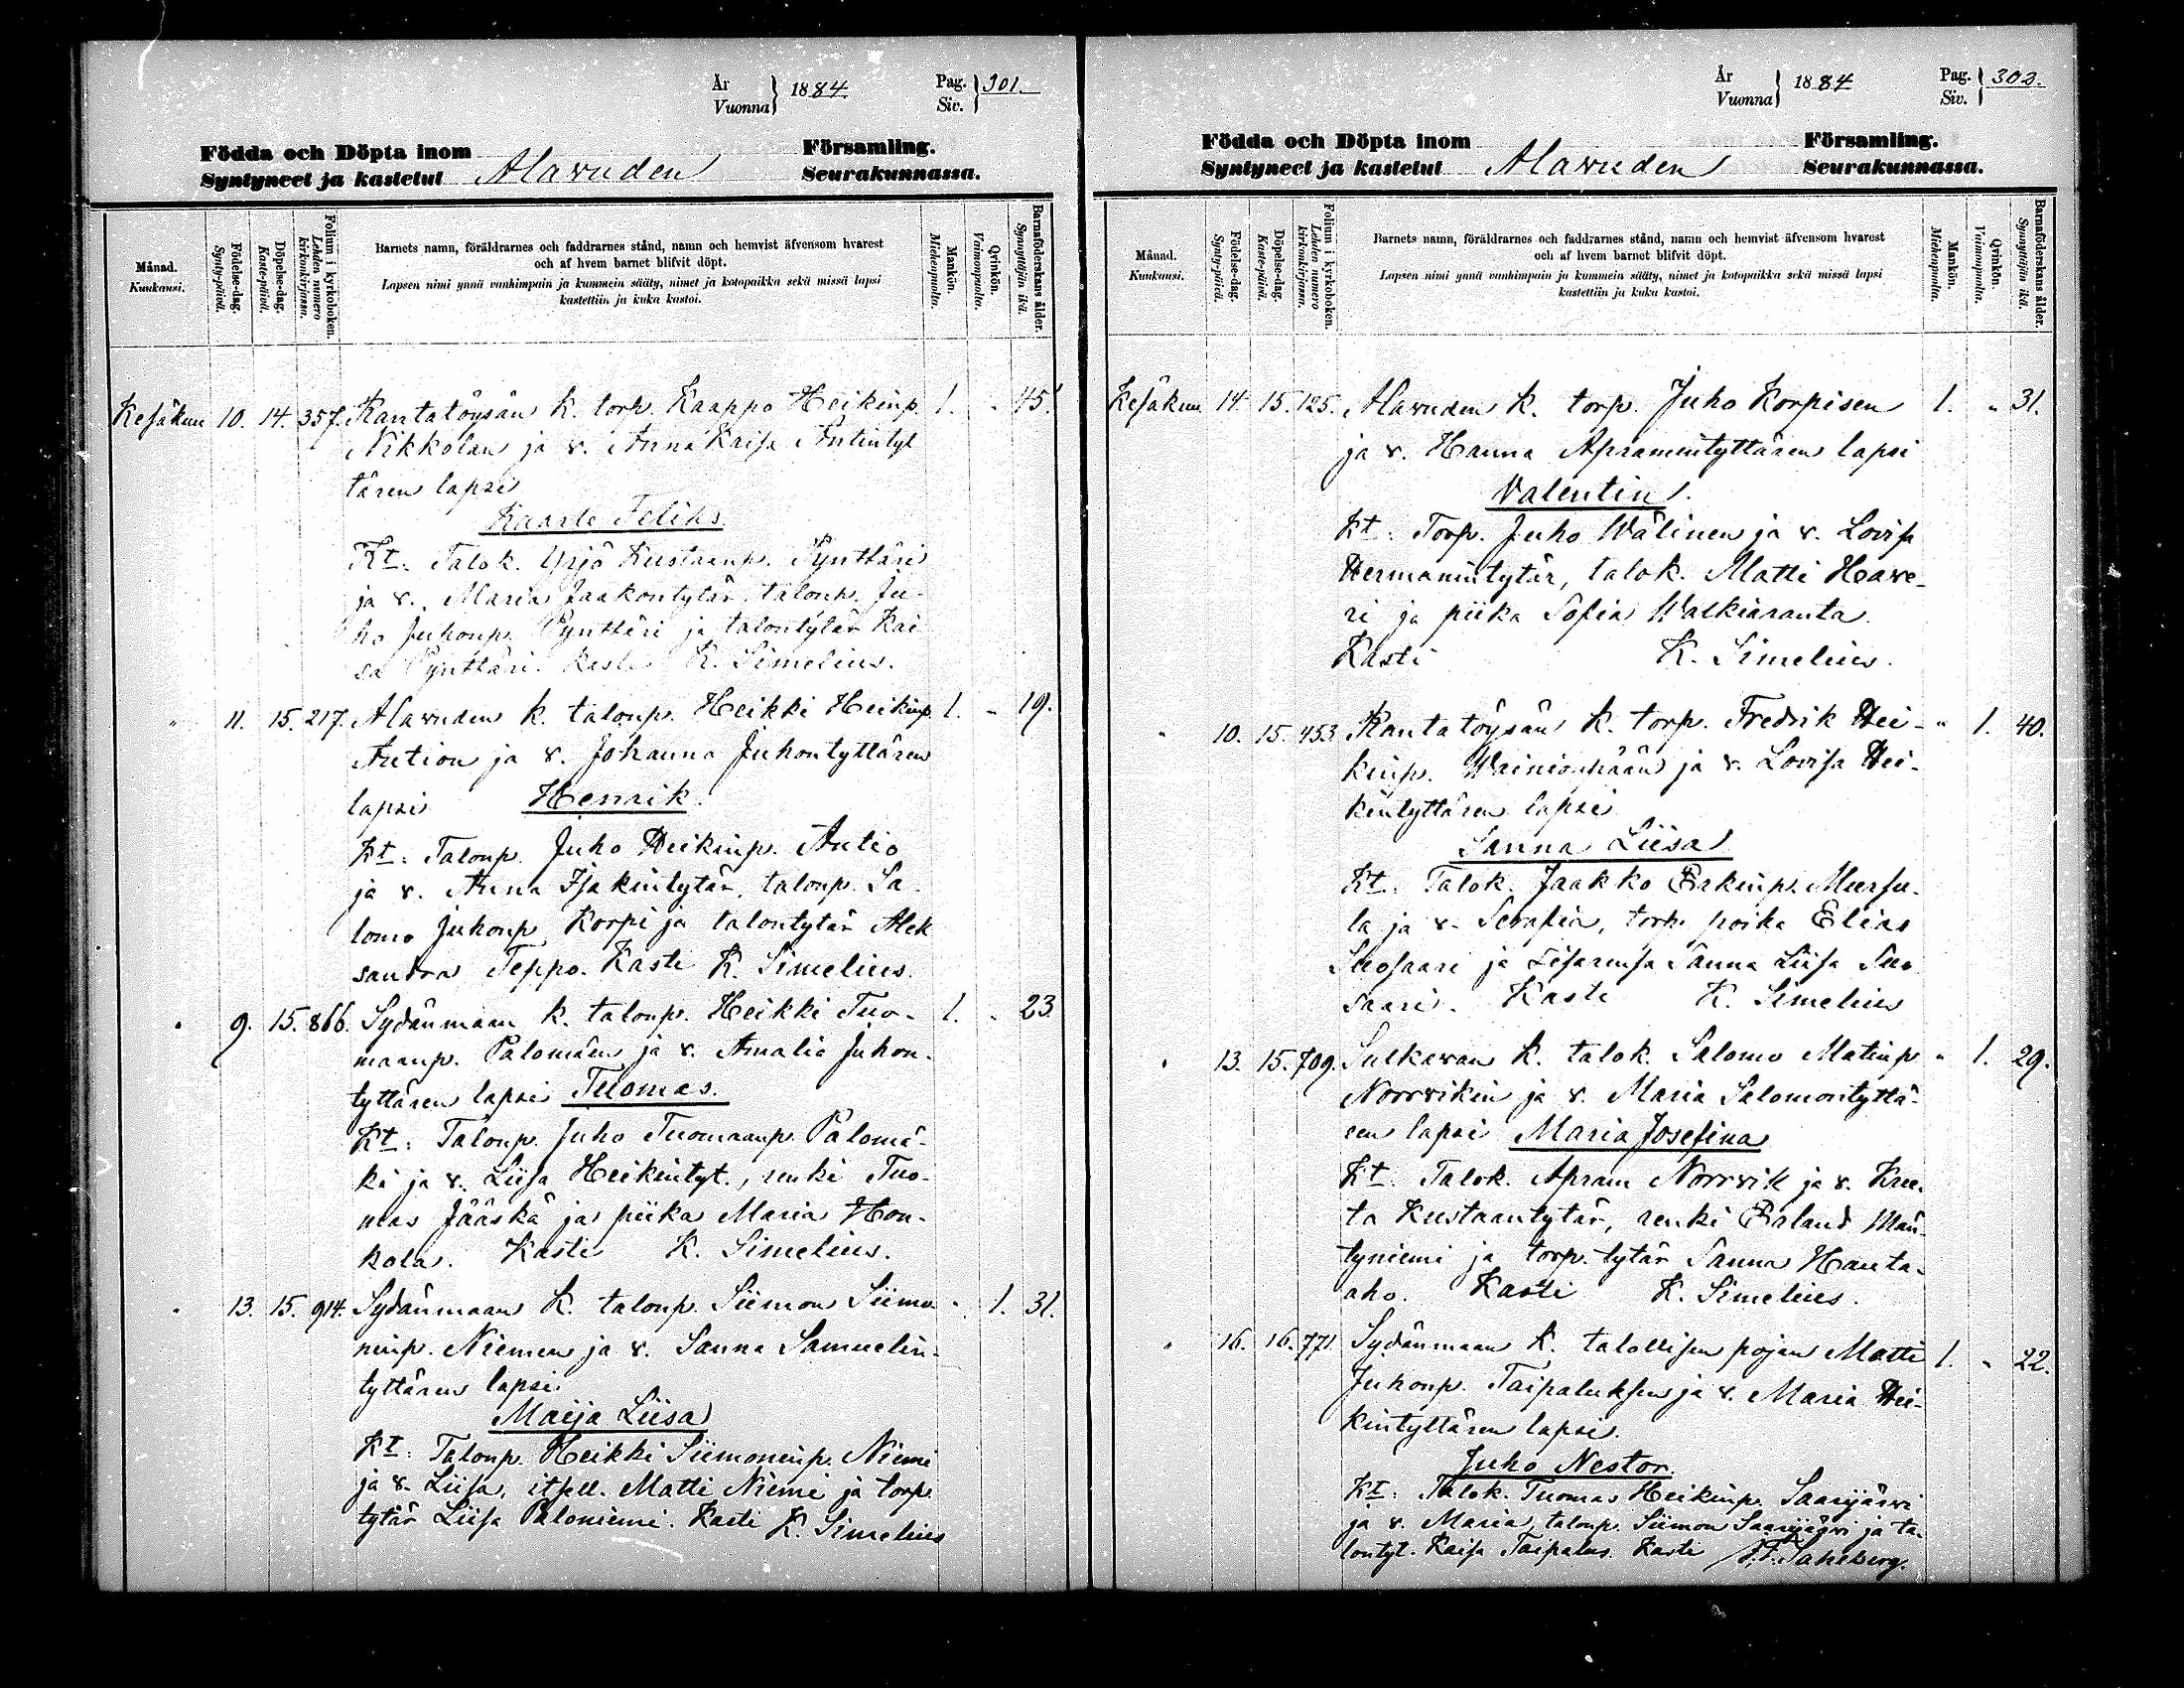 År
Vuonna } 1884. Pag.
Siv. } 301.
Födda och Döpta inom Församling.
Syntyneet ja kastetut Alavuden Seurakunnassa.
Månad.
Kuukausi.
Födelse-dag.
Synty-päivä.
Döpelse-dag.
Kaste-päivä.
Folium i kyrkoboken.
Lehden numero
kirkonkirjassa.
Barnets namn, föräldrarnes och faddrarnes stånd, namn och hemvist äfvensom hvarest
och af hvem barnet blifvit döpt.
Lapsen nimi ynnä vanhimpain ja kummein sääty, nimet ja kotopaikka sekä missä lapsi
kastettiin ja kuka kastoi.
Mankön.
Miehenpuolta.
Qvinkön.
Vaimonpuolta.
Barnaföderskans ålder.
Synnyttäjän ikä.
Kesäkuu 10. 14. 357. Rantatöysän k. torp. Kaappo Heikinp. 1. " 45.
Nikkolan ja v. Anna Kaisa Antintyt
tären lapsi
Kaarle Feliks.
Kt: Talok. Yrjö Kustaanp. Pynttäri
ja v. Maria Jaakontytär, talonp. Ju-
ho Juhonp. Pynttäri ja talontytär Kai
sa Pynttäri. Kasti K. Simelius.
" 11. 15. 217. Alavuden k. talonp. Heikki Heikinp. 1. " 19.
Aution ja v. Johanna Juhontyttären
lapsi Henrik.
Kt: Talonp. Juho Heikinp. Autio
ja v. Anna Isakintytär, talonp. Sa-
lomo Juhonp. Korpi ja talontytär Alek
sandra Teppo. Kasti K. Simelius.
" 9. 15. 866. Sydänmaan k. talonp. Heikki Tuo- 1. " 23.
maanp. Palomäen ja v. Amalia Juhon-
tyttären lapsi Tuomas.
Kt: Talonp. Juho Tuomaanp. Palomä-
ki ja v. Liisa Heikintyt., renki Tuo-
mas Jääskä ja piika Maria Hon-
kola. Kasti K. Simelius.
" 13. 15. 914. Sydänmaan k. talonp. Siimon Siimo " 1. 31.
ninp. Niemen ja v. Sanna Samuelin-
tyttären lapsi
Maija Liisa
Kt: Talonp. Heikki Siimoninp. Niemi
ja v. Liisa, itsell. Matti Niemi ja torp.
tytär Liisa Paloniemi. Kasti K. Simelius
År
Vuonna } 1884 Pag.
Siv. } 302.
Födda och Döpta inom Församling.
Syntyneet ja kastetut Alavuden Seurakunnassa.
Månad.
Kuukausi.
Födelse-dag.
Synty-päivä.
Döpelse-dag.
Kaste-päivä.
Folium i kyrkoboken.
Lehden numero
kirkonkirjassa.
Barnets namn, föräldrarnes och faddrarnes stånd, namn och hemvist äfvensom hvarest
och af hvem barnet blifvit döpt.
Lapsen nimi ynnä vanhimpain ja kummein sääty, nimet ja kotopaikka sekä missä lapsi
kastettiin ja kuka kastoi.
Mankön.
Miehenpuolta.
Qvinkön.
Vaimonpuolta.
Barnaföderskans ålder.
Synnyttäjän ikä.
Kesäkuu 14. 15. 125. Alavuden k. torp. Juho Korpisen 1. " 31.
ja v. Hanna Apramintyttären lapsi
Valentin.
Kt: Torp. Juho Wälinen ja v. Lovisa
Hermanintytär, talok. Matti Have-
ri ja piika Sofia Walkiaranta.
Kasti K. Simelius.
" 10. 15. 453 Rantatöysän k. torp. Fredrik Hei- " 1. 40.
kinp. Wainionpään ja v. Lovisa Hei-
kintyttären lapsi
Sanna Liisa
Kt: Talok. Jaakko Erkinp. Mursu-
la ja v. Serafia, torp. poika Elias
Suosaari ja Sanna Liisa Suo
saari. Kasti K. Simelius
" 13. 15. 709. Sulkavan k. talok. Salomo Matinp. " 1. 29.
Norrvikin ja v. Maria Salomontyttä-
ren lapsi Maria Josefina
Kt: Talok. Apram Norrvik ja v. Kree-
ta Kustaantytär, renki Erland Män-
tyniemi ja torp. tytär Sanna Hauta-
aho. Kasti K. Simelius.
" 16. 16. 771. Sydänmaan k. talollisen pojan Matti 1. " 22.
Juhonp. Taipaluksen ja v. Maria Hei-
kintyttären lapsi.
Juho Nestor.
Kt: Talok. Tuomas Heikinp. Saarijärvi
ja v. Maria, talonp. Siimon Saarijärvi ja ta-
lontyt. Kaisa Taipalus. Kasti